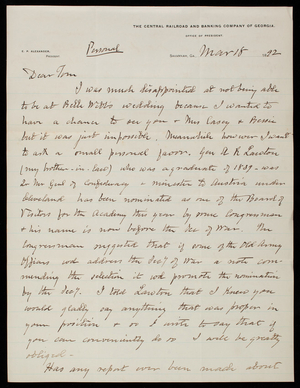 THE CENTRAL RAILROAD AND BANKING COMPANY OF GEORGIA.
OFFICE OF PRESIDENT
E. P. ALEXANDER,
President.
Personal
Savannah, Ga., Mar 18 1892
Dear Tom
I was much disappointed at not being able
to be at Belle Mills wedding because I wanted to
have a chance to see you & Mrs Casey & Bessie
but it was just impossible. Meanwhile however I want
to ask a small personal favor. Gen A R Lawton
(my brother-in-law) who was a graduate of 1839 - was
Qr Mr Genl of Confederacy & minister to Austria under
Cleveland has been nominated as one of the Board of
Visitors for the Academy this year by some Congressman
& his name is now before the Sec of War. The
Congressman suggested that if some of the Old Army
Officers wd address the Sec'y of War a note com-
mending the selection it wd promote the nomination
by the Sec'y. I told Lawton that I knew you
would gladly say anything that was proper in
your position & so I write to say that if
you can conveniently do so I will be greatly
obliged -
Has any report ever been made about